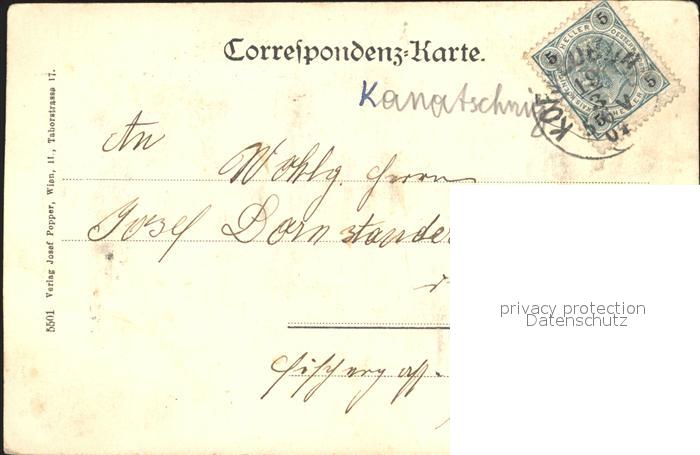 Correspondenz-Karte.
Kanatschnig
An
Wohlg. Herrn
Josef Dornstaude
privacy protection
Datenschutz
5501 Verlag Josef Popper, Wien, II., Taborstrasse 17.
5 HELLER 5
5
5